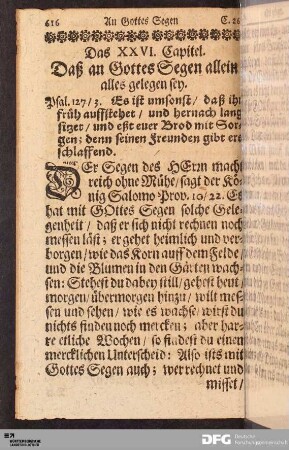 616 An Gottes Segen C. 26
Das XXVI. Capitel.
Daß an Gottes Segen allein
alles gelegen sey.
Psal. 127/3. Es ist umsonst/ daß ihr
früh auffstehet / und hernach lang
sitzet/ und eßt euer Brod mit Sor-
gen; denn seinen Freunden gibt ers
schlaffend.
DEr Segen des HErrn macht
reich ohne Mühe/ sagt der Kö-
nig Salomo Prov. 10/22. Es
hat mit GOttes Segen solche Gele-
genheit / daß er sich nicht rechnen noch
messen läst; er gehet heimlich und ver-
borgen/ wie das Korn auff dem Felde/
und die Blumen in den Gärten wach-
sen: Stehest du dabey still/ gehest heut/
morgen/ übermorgen hinzu/ wilt mes-
sen und sehen/ wie es wachse/ wirst du
nichts finden noch mercken; aber har-
re etliche Wochen/ so findest du einen
mercklichen Unterscheid: Also ists mit
Gottes Segen auch; wer rechnet und
misset/
DFG Deutsche
Forschungsgemeinschaft